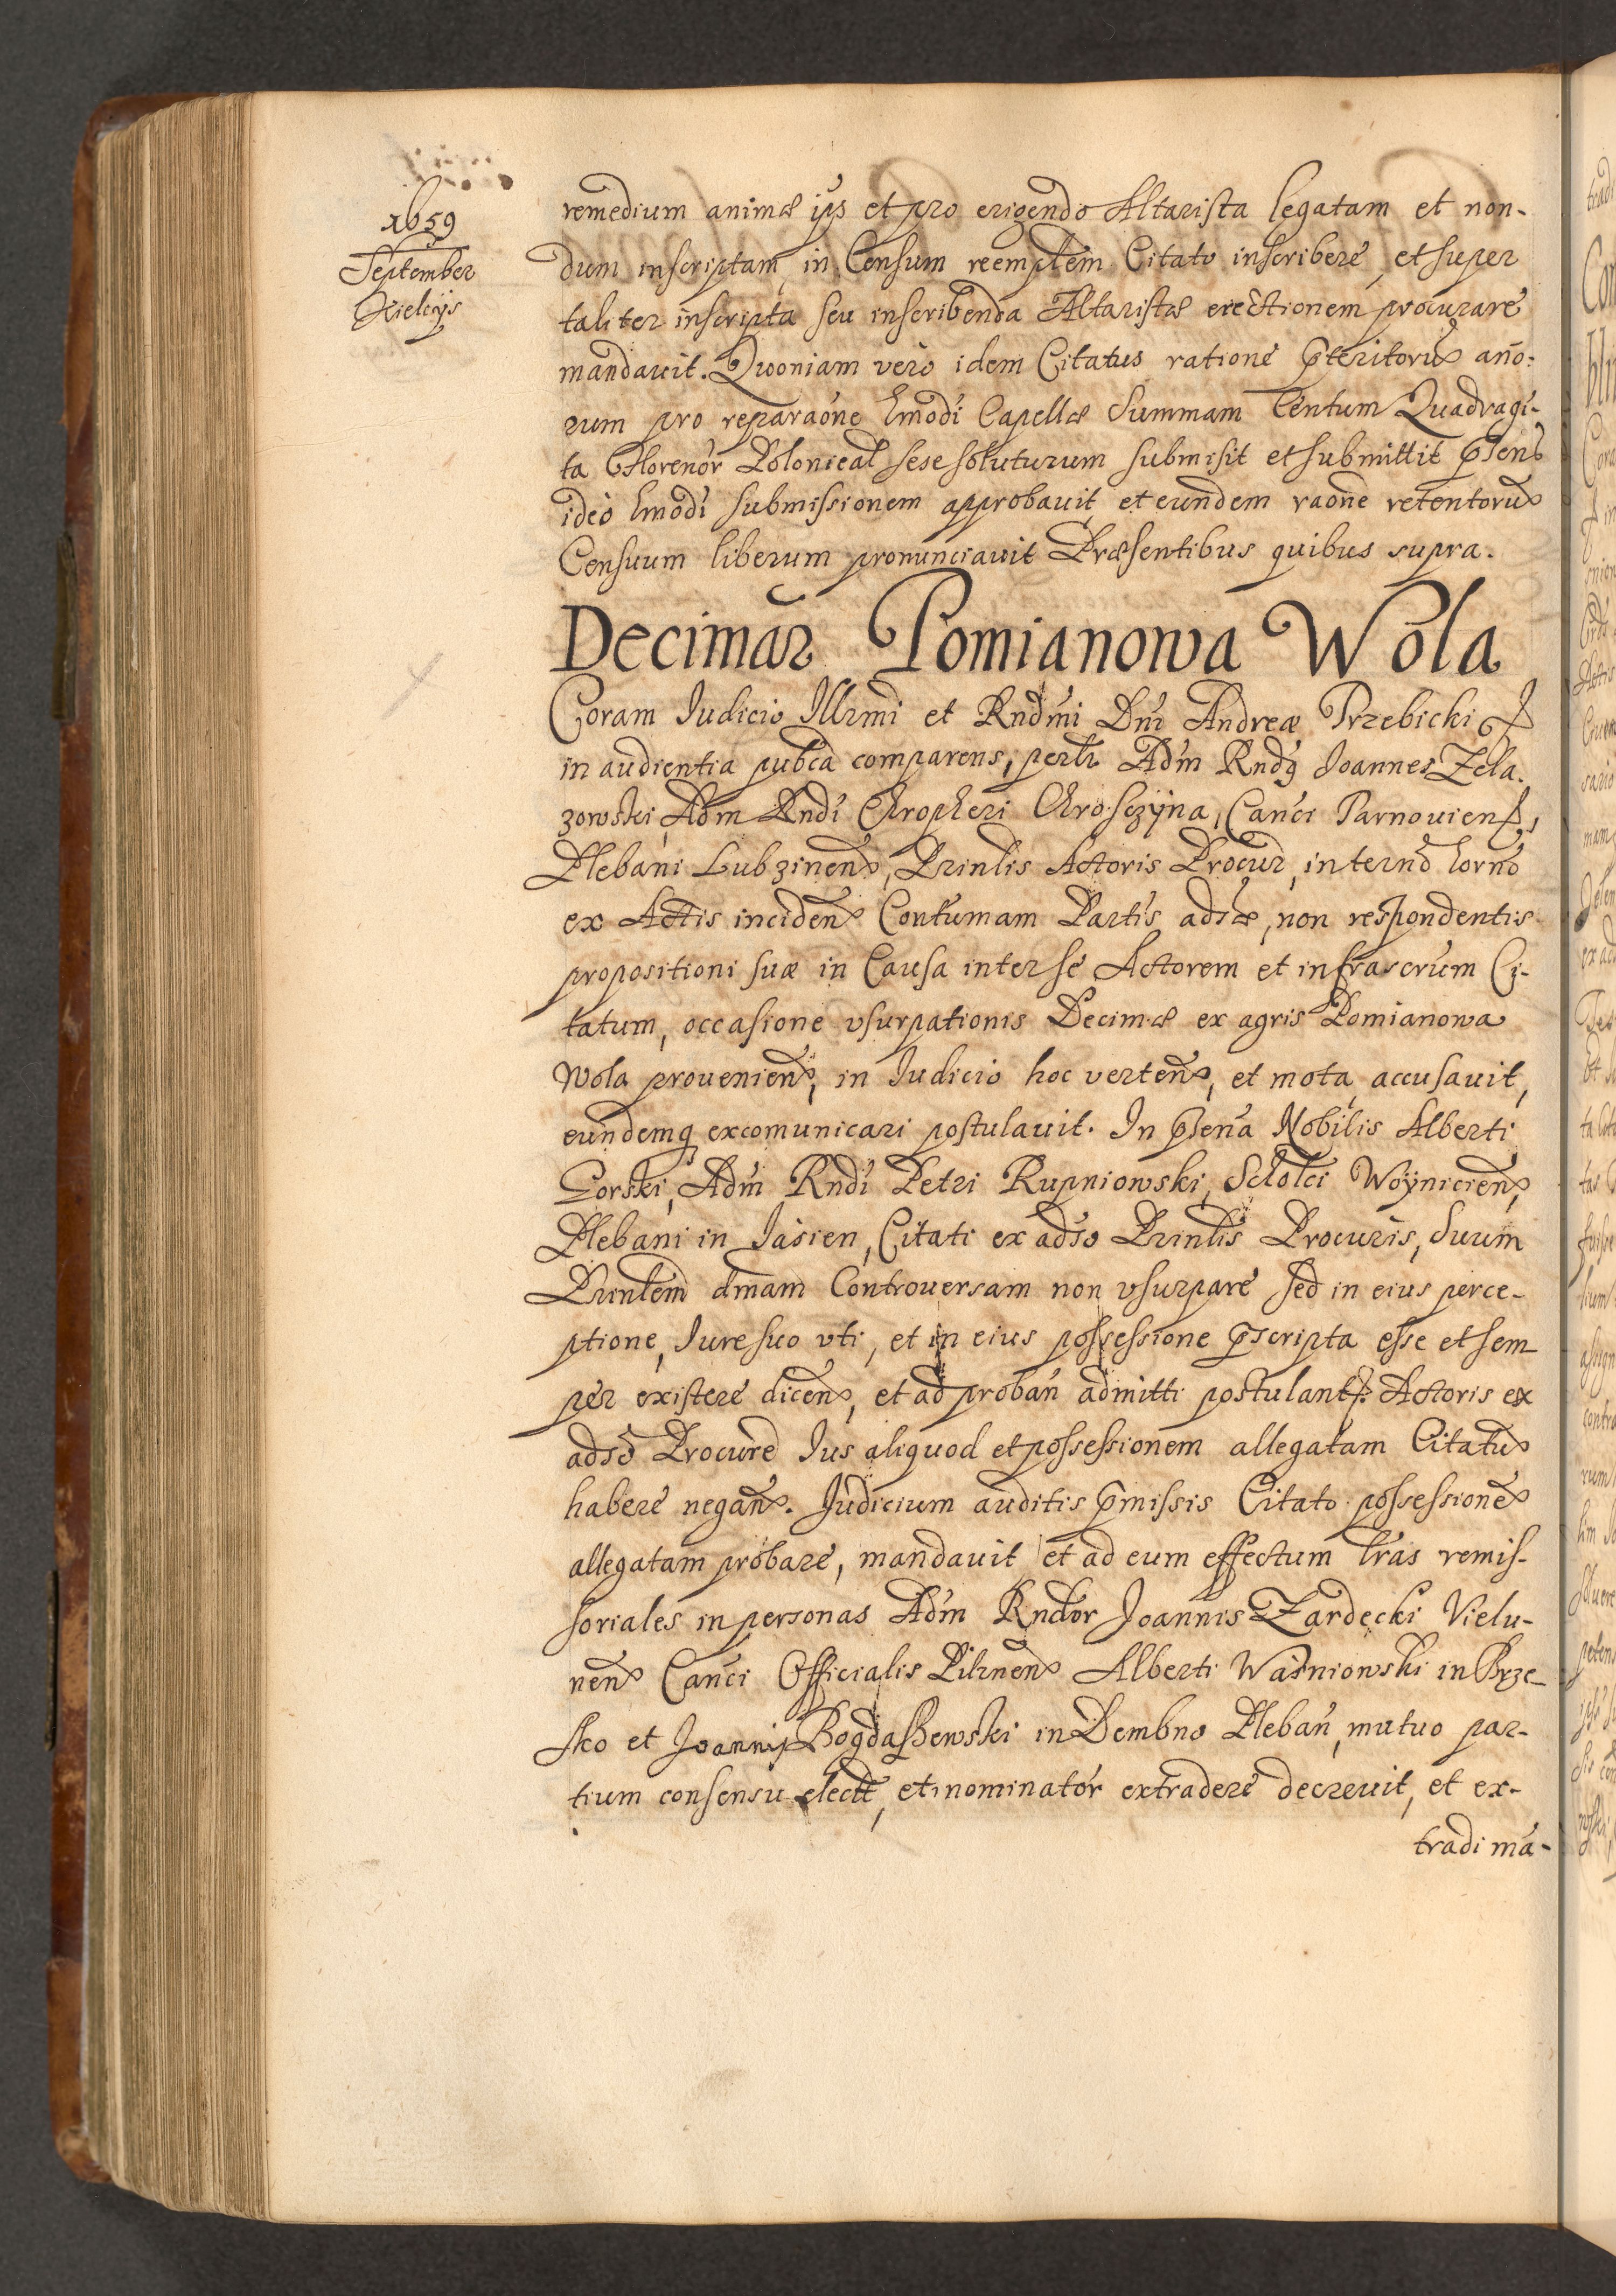 1659
September
Kielcijs
remedium animæ ips et pro erigendo Altarista legatam et non-
dum inscriptam, in Censum reemptlem Citato inscribere, et super
taliter inscripta seu inscribenda Altaristæ erectionem procurare
mandavit. Quoniam vero idem Citatus ratione pteritorum año-
rum pro reparaone hmodi Capellæ Summam Centum Quadragi-
ta Florenor Polonical sese soluturum submisit et submittit psens
ideo hmodi submissionem approbavit et eundem raone retentorum
Censuum liberum pronunciavit Præsentibus quibus supra.
Decimar Pomianowa Wola
Coram Iudicio Illrmi et Rndmi Dni Andreæ Trzebicki
in audientia publca comparens, perlr Adm Rndq Joannes Zela-
zowski, Adm Rndi Chropheri Chrosczyna, Canci Tarnouien,
Plebani Lubzinen, Prinlis Actoris Procur, in termo horno
ex Actis inciden Contumam Partis adsæ, non respondentis
propositioni suæ in Causa inter se Actorem et infrascrum Ci-
tatum, occasione vsurpationis Decimæ ex agris Pomianowa
Wola prouenien, in Iudicio hoc verten, et mota, accusavit,
eundemq excomunicari postulavit. In psena Nobilis Alberti
Gorski, Adm Rndi Petri Rupniowski, Scholci Woynicien,
Plebani in Iasien, Citati ex adso Prinlis Procuris, Suum
Prinlem dmam Controuersam non vsurpare sed in eius perce-
ptione, Iure suo vti, et in eius possessione pscripta esse et sem-
per existere dicen, et ad proban admitti postulant. Actoris ex
adso Procure Ius aliquod et possessionem allegatam Citatum
habere negan. Iudicium auditis pmissis Citato possessionem
allegatam probare, mandavit et ad eum effectum lras remis-
soriales in personas Adm Rndor Joannis Zardecki Vielu-
nen Canci Officialis Pilznen Alberti Wasniowski in Brze-
sko et Joannis Bogdashewski in Dembno Pleban, mutuo par-
tium consensu elect, et nominator extradere decrevit, et ex-
tradi ma-